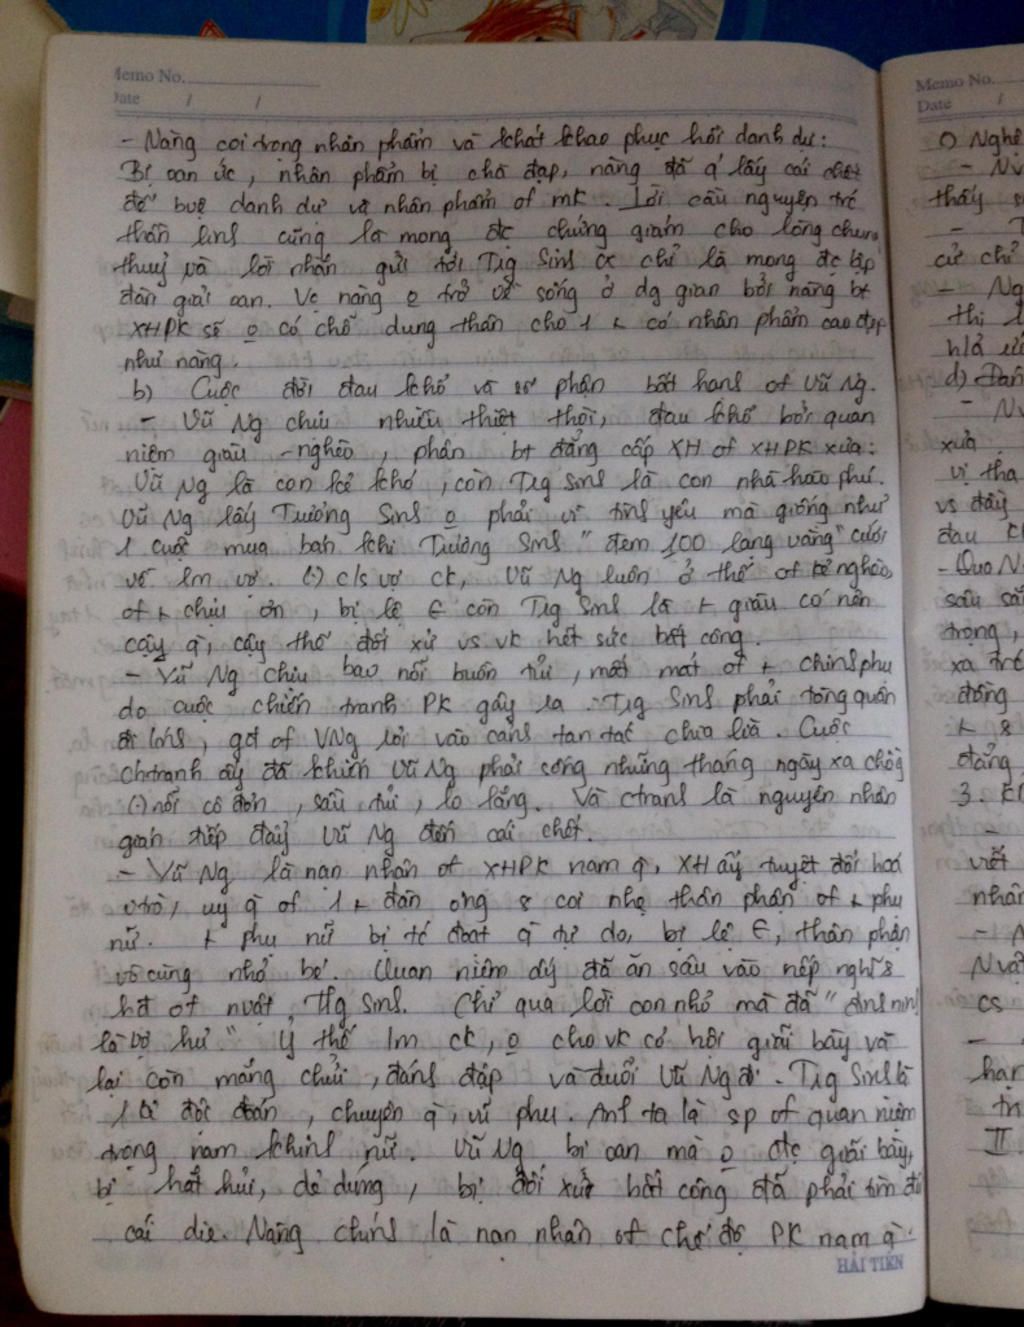 Memo No.
Date / /
- Nàng coi trọng nhân phẩm và khát khao phục hồi danh dự:
Bị oan ức, nhân phẩm bị chà đạp, nàng đã q' lấy cái chết
để bvệ danh dự và nhân phẩm of mk. Lời cầu nguyện trc
thần linh cũng là mong đc chứng giám cho lòng chung
thuỷ và lời nhắn gửi tới Trg Sinh chỉ là mong đc lập
đàn giải oan. Vc nàng o trở về sống ở dg gian bởi nàng bt
XHPK sẽ o có chỗ dung thân cho 1 có nhân phẩm cao đẹp
như nàng.
b) Cuộc đời đau khổ và số phận bất hạnh of Vũ Ng.
- Vũ Ng chịu nhiều thiệt thòi, đau khổ bởi quan
niệm giàu - nghèo, phân bt đẳng cấp XH of XHPK xưa:
Vũ Ng là con kẻ khó, còn Trg Sinh là con nhà hào phú.
Vũ Ng lấy Trương Sinh o phải vì tình yêu mà giống như
1 cuộc mua bán khi Trương Sinh "đem 100 lạng vàng" cưới
về lm vợ. (.) c/s vợ ck, Vũ Ng luôn ở thế of kẻ nghèo,
of chịu ơn, bị lệ € còn Trg Sinh là giàu có nên
cậy q`, cậy thế đối xử vs vk hết sức bất công.
- Vũ Ng chịu bao nỗi buồn tủi, mất mát of chinh phụ
do cuộc chiến tranh PK gây ra. Trg Sinh phải tòng quân
đi lính, gđ of VNg rơi vào cảnh tan tác chia lìa. Cuộc
chtranh ấy đã khiến Vũ Ng phải sống những tháng ngày xa chồng
(.) nỗi cô đơn, sầu tủi, lo lắng. Và ctranh là nguyên nhân
gián tiếp đẩy Vũ Ng đến cái chết.
- Vũ Ng là nạn nhân of XHPK nam q`, XH ấy tuyệt đối hoá
vtrò, uy q` of 1 đàn ông & coi nhẹ thân phận of phụ
nữ. phụ nữ bị tc đoạt q` tự do, bị lệ €, thân phận
vô cùng nhỏ bé. Quan niệm ấy đã ăn sâu vào nếp nghĩ &
hđ of nvật Trg Sinh. Chỉ qua lời con nhỏ mà đã "đinh ninh
là vợ hư." Ỷ thế lm ck, o cho vk có hội giãi bày và
lại còn mắng chửi, đánh đập và đuổi Vũ Ng đi. Trg Sinh là
1 độc đoán, chuyên q`, vũ phu. Anh ta là sp of quan niệm
trọng nam khinh nữ. Vũ Ng bị oan mà o đc giãi bày,
bị hắt hủi, dè dúng, bị đối xử bất công đã phải tìm đến
cái die. Nàng chính là nạn nhân of chế độ PK nam q`.
HẢI TIẾN
Memo No.
Date /
- Nv
thấy
cử chỉ
- Ng
thị
d) Đán
- Nv
xưa
vị tha
vs đầy
đau
- Qua N
trọng,
xa trc
đồng
đẳng
3.
viết
nhân
Nvật
cs
hạn
II.